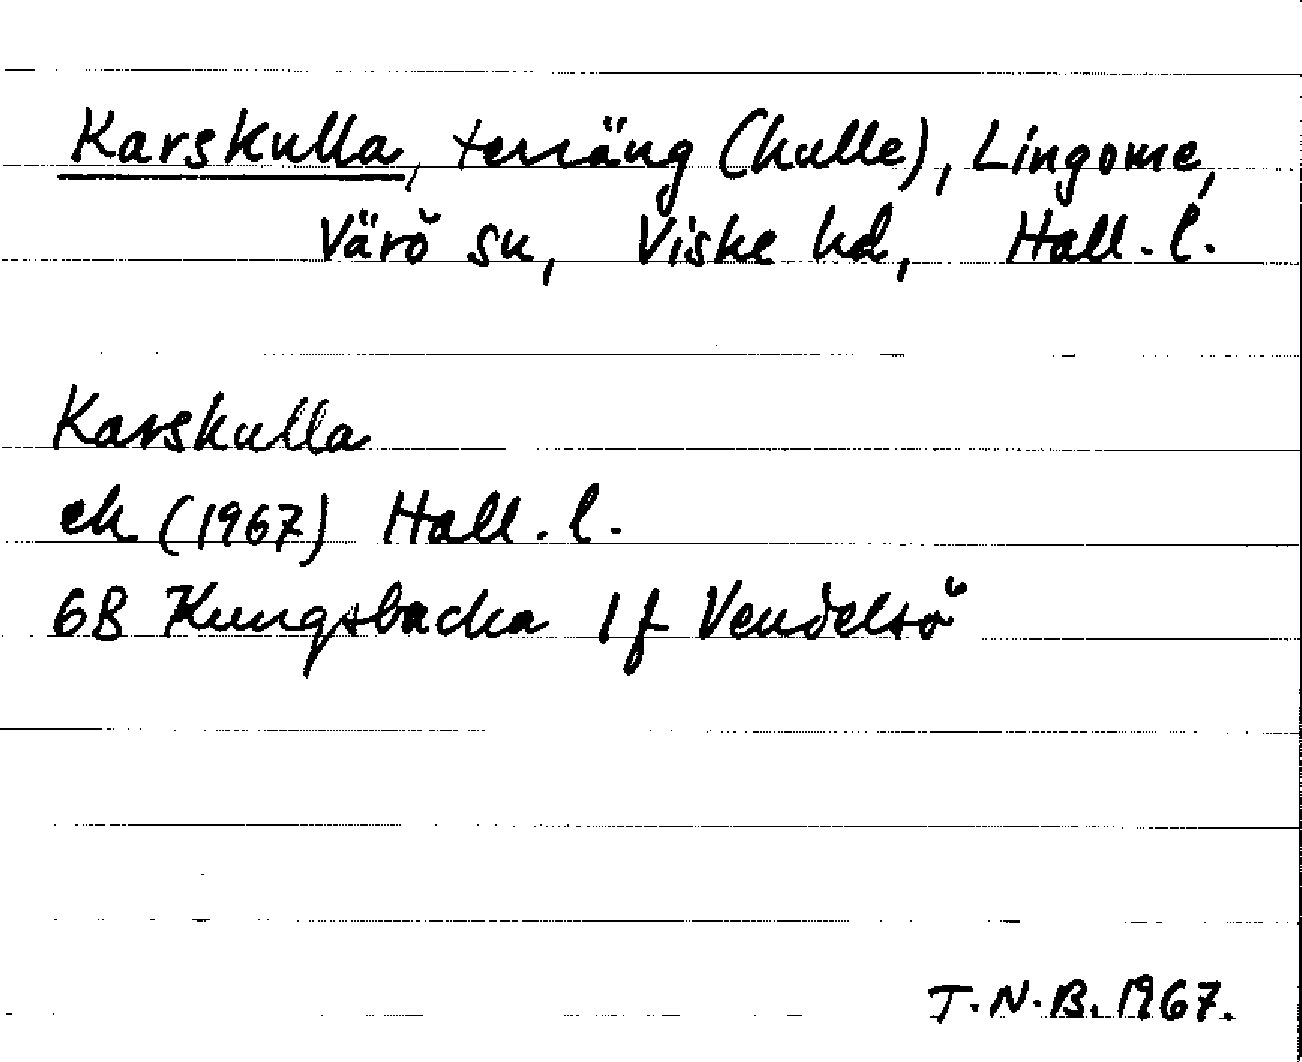 Karskulla, terräng (kulle), Lingome,
Värö sn, Viske hd, Hall. l.
Karskulla
ek (1967) Hall. l.
6B Kungsbacka 1 f Vendelsö
T.N.B. 1967.